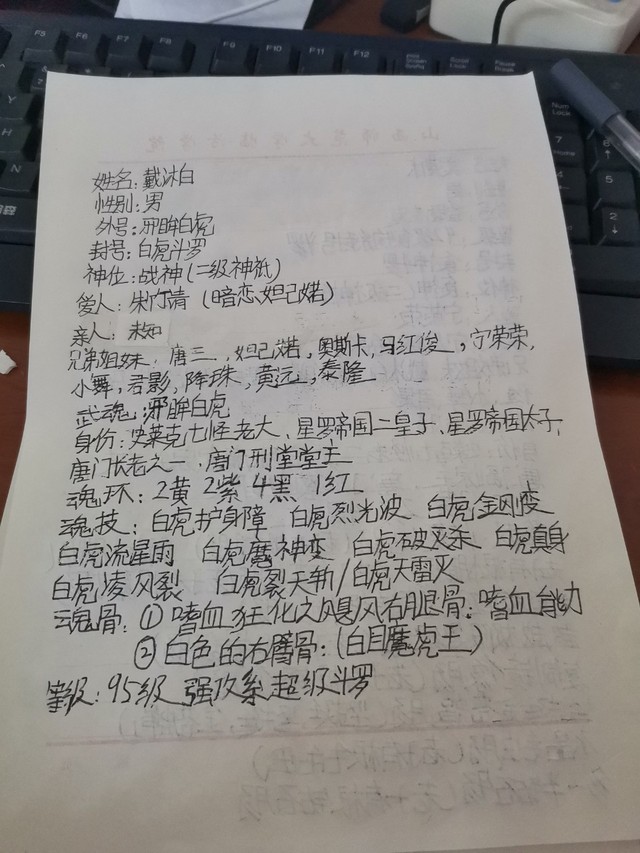 姓名：戴沐白
性别：男
外号：邪眸白虎
封号：白虎斗罗
神位：战神（二级神祇）
爱人：朱竹清（暗恋妲己婼）
亲人：未知
兄弟姐妹：唐三，妲己婼，奥斯卡，马红俊，宁荣荣，
小舞，君影，降珠，黄远，泰隆
武魂：邪眸白虎
身份：史莱克七怪老大、星罗帝国二皇子、星罗帝国太子、
唐门长老之一、唐门刑堂堂主
魂环：2黄 2紫 4黑 1红
魂技：白虎护身障 白虎烈光波 白虎金刚变
白虎流星雨 白虎魔神变 白虎破灭杀 白虎真身
白虎凌风裂 白虎裂天斩/白虎天雷灭
魂骨：①嗜血狂化之飓风右腿骨：嗜血能力
②白色的右臂骨：（白目魔虎王）
等级：95级 强攻系超级斗罗
F5 F6 F7 F8 F9 F10 F11 F12